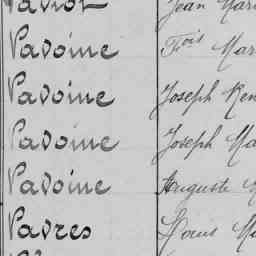 Pavoine Fois Mar
Pavoine Joseph Ren
Pavoine Joseph Ma
Pavoine Auguste
Pavres Louis